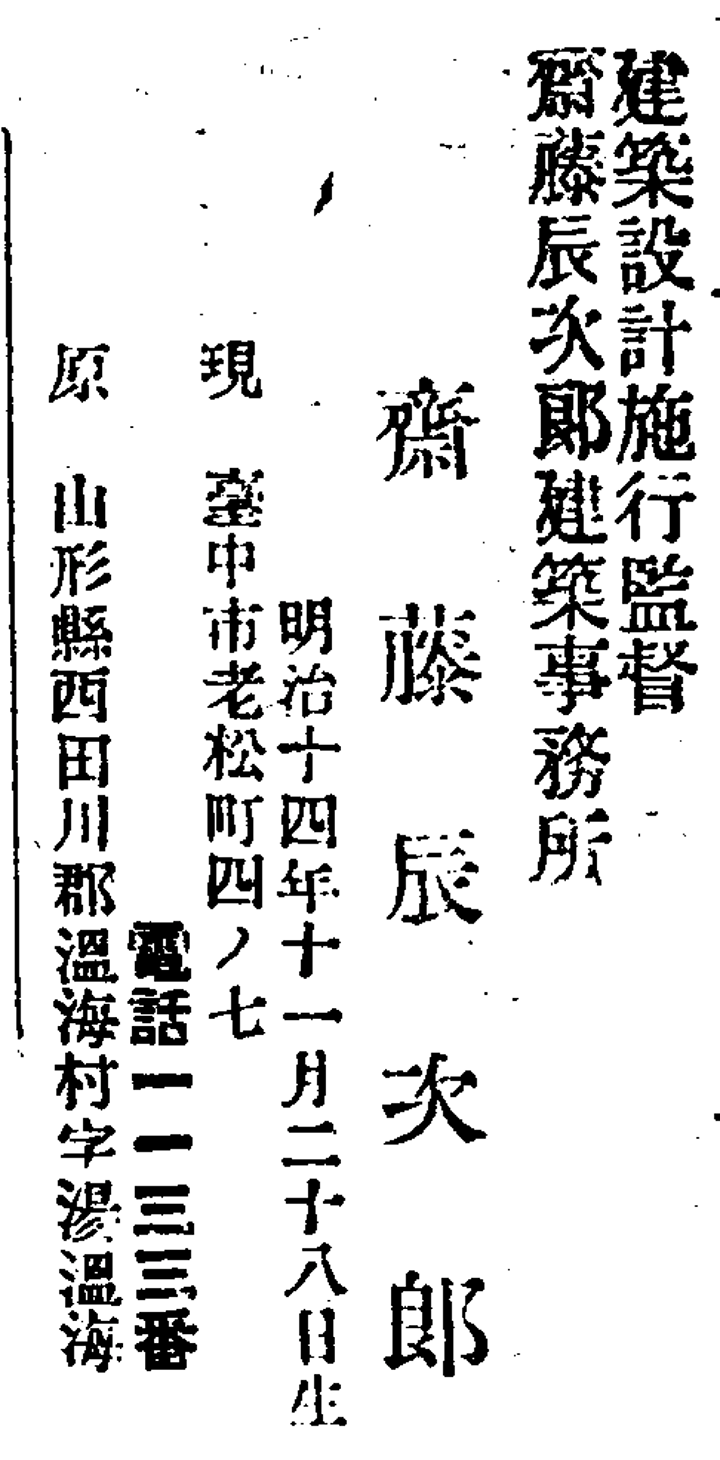 建築設計施行監督
齋藤辰次郎建築事務所
齋藤辰次郎
明治十四年十一月二十八日生
現 臺中市老松町四ノ七
電話一一三三番
原 山形縣西田川郡溫海村字湯溫海